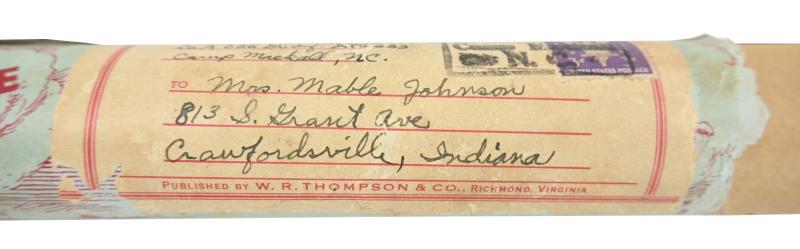 Camp Mackall, N.C.
TO Mrs. Mable Johnson
813 S. Grant Ave
Crawfordsville, Indiana
PUBLISHED BY W. R. THOMPSON & CO., RICHMOND, VIRGINIA
Camp
N.
UNITED STATES POSTAGE
E